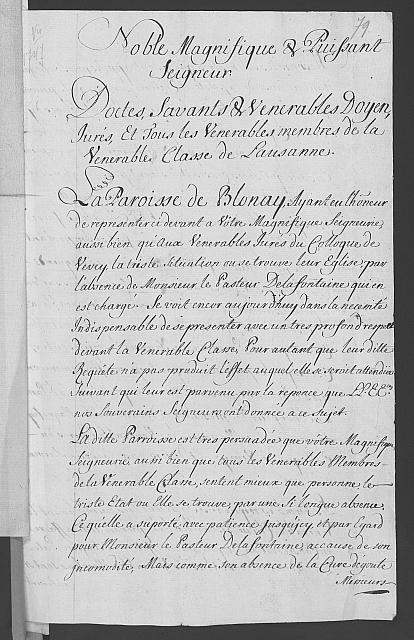 79
Noble Magnifique & Puissant
Seigneur
Doctes, Savants & Venerables Doyen,
Jurés, Et Tous les Venerables membres de la
Venerable Classe de Lausanne.
La Paroisse de Blonay, Ayant eu lhôneur
de representer ci devant a Vôtre Magnifique Seigneurie,
aussi bien qu'aux Venerables Jures du Colloque de
Vevey la triste Situation ou se trouve leur Eglise, par
l'absence de Monsieur le Pasteur Delafontaine qui en
est chargé. Se voit encor aujourdhuy dans la necessité
Indispensable de se presenter avec un tres profond respect
devant la Venerable Classe, Pour autant que leur ditte
Requête n'a pas produit l'effet auquel elle se seroit attendue
Suivant qui leur est parvenu par la reponce que LL.EE.
nos Souverains Seigneurs ont donnée a ce Sujet.
La ditte Parroisse est tres persuadée que vôtre Magnifique
Seigneurie, aussi bien que tous les Venerables Membres
de la Venerable Classe, sentent mieux que personne le
triste Etat ou Elle se trouve, par une Si longue absence.
Ce qu'elle a suporté avec patience Jusqu'icy, et par Egard
pour Monsieur le Pasteur Delafontaine, accause de son
incomodité, Mais comme son absence de la Cure degoute